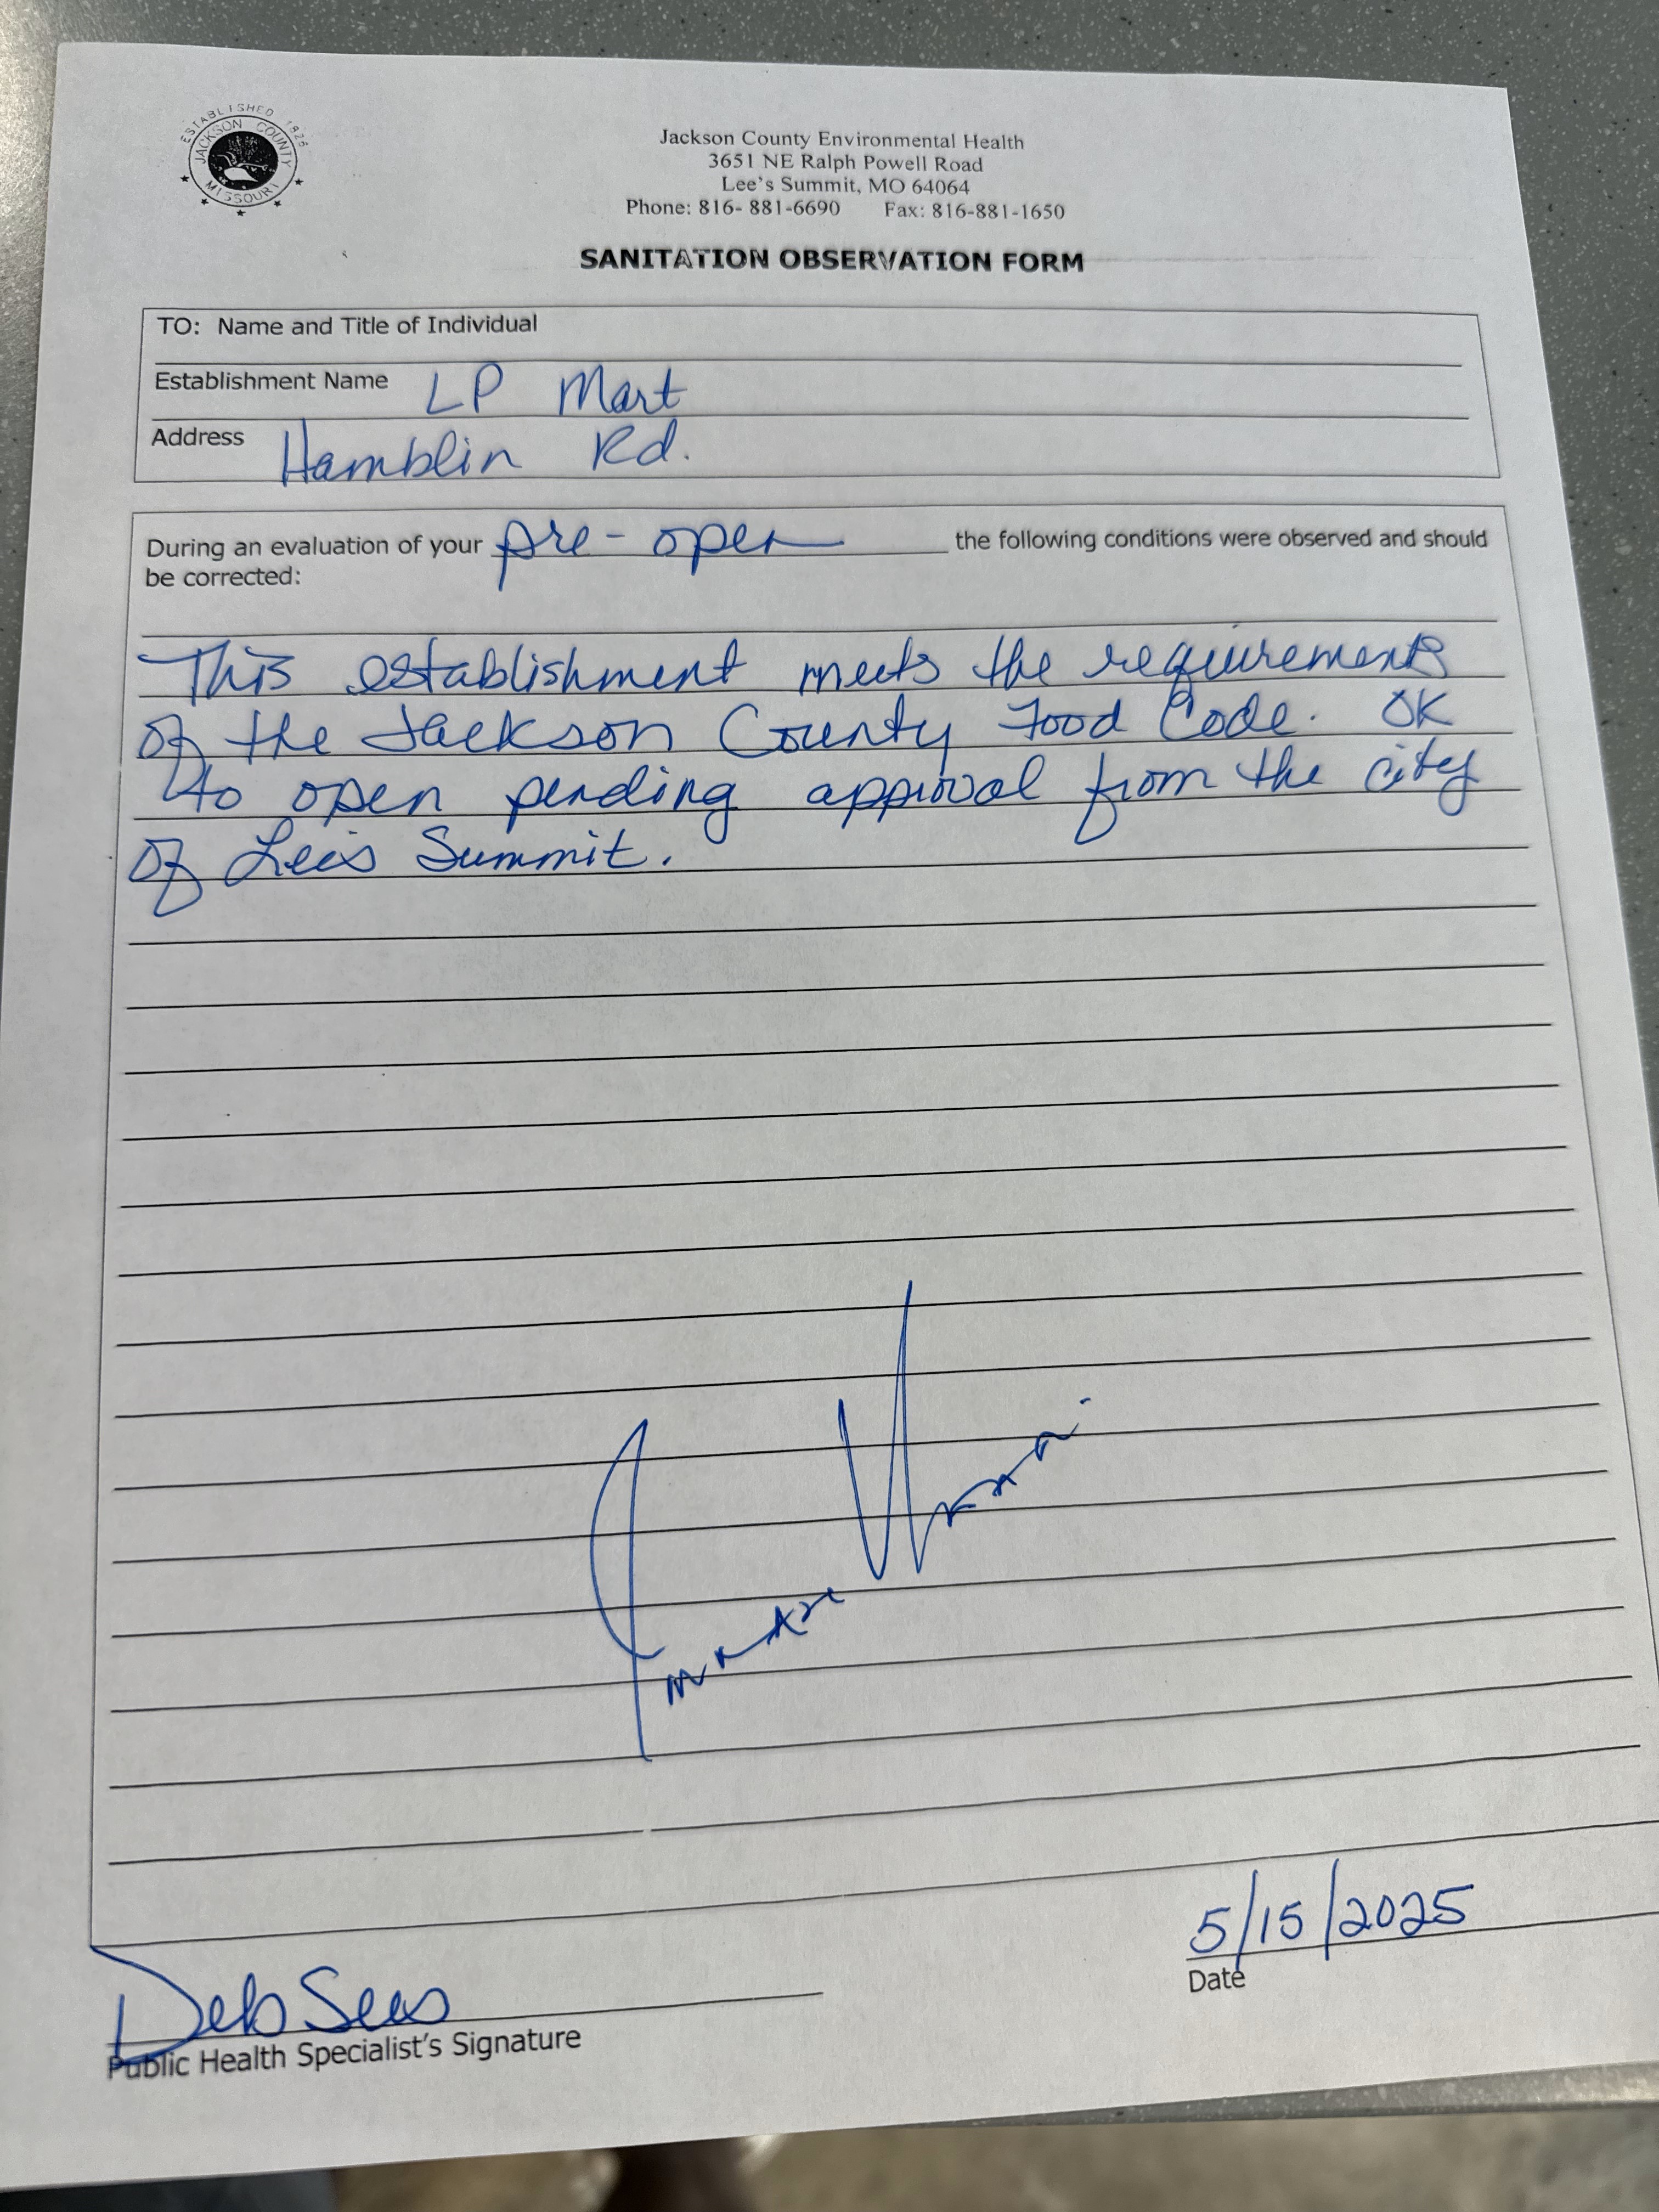 ESTABLISHED 1826
JACKSON COUNTY
MISSOURI
Jackson County Environmental Health
3651 NE Ralph Powell Road
Lee's Summit, MO 64064
Phone: 816- 881-6690 Fax: 816-881-1650
SANITATION OBSERVATION FORM
TO: Name and Title of Individual
Establishment Name LP Mart
Address Hamblin Rd.
During an evaluation of your pre-open the following conditions were observed and should
be corrected:
This establishment meets the requirements
of the Jackson County Food Code. OK
to open pending approval from the city
of Lee's Summit.
5/15/2025
Date
Deb Sees
Public Health Specialist's Signature